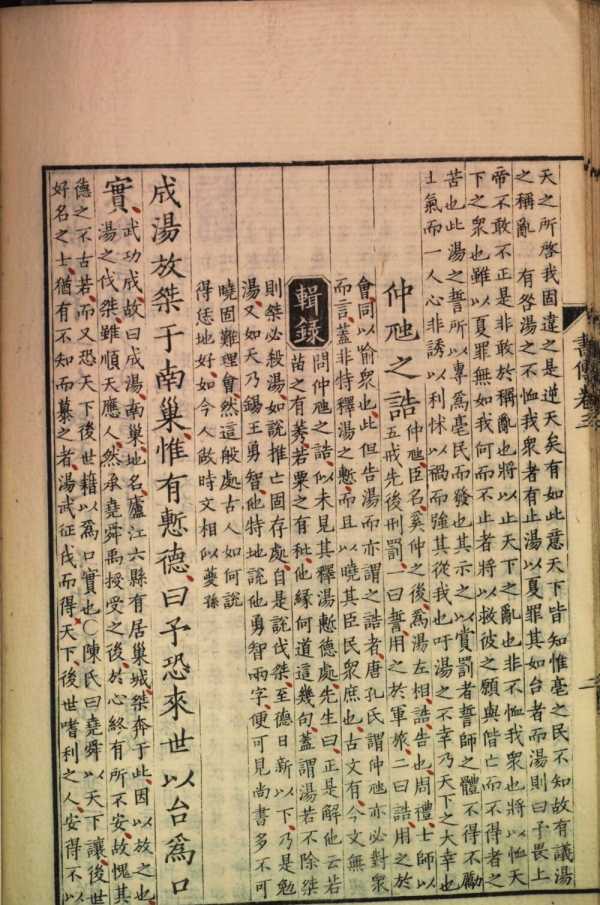 天之所啓我固違之是逆天矣有如此意天下皆知惟亳之民不知故有議湯
之稱亂 有咎湯之不恤我衆者有止湯以夏罪其如台者而湯則曰予畏上
帝不敢不正是非敢於稱亂也將以止天下之亂也非不恤我衆也將以恤天
下之衆也雖以夏罪無如我何而不止者將以救彼之願與偕亡而不得者之
苦也此湯之誓所以專爲亳民而發也其示之以賞罰者誓師之體不得不勵
士氣而一人心非誘以利怵以禍而強其從我也吁湯之不幸乃天下之大幸也
仲虺之誥 仲虺臣名奚仲之後爲湯左相誥告也周禮士師以
五戒先後刑罰一曰誓用之於軍旅二曰誥用之於
會同以喻衆也此但告湯而亦謂之誥者唐孔氏謂仲虺亦必對衆
而言蓋非特釋湯之慙而且以曉其臣民衆庶也古文有今文無
輯錄 問仲虺之誥似未見其釋湯慙德處先生曰正是解他云若
苗之有莠若粟之有秕他緣何道這幾句蓋謂湯若不除桀
則桀必殺湯如說推亡固存處自是說伐桀至德日新以下乃是勉
湯又如天乃錫王勇智他特地說他勇智兩字便可見尚書多不可
曉固難理會然這般處古人如何說
得恁地好如今人做時文相似蘷孫
成湯放桀于南巢惟有慙德曰予恐來世以台爲口
實 武功成故曰成湯南巢地名廬江六縣有居巢城桀奔于此因以放之也
湯之伐桀雖順天應人然承堯舜禹授受之後於心終有所不安故愧其
德之不古若而又恐天下後世藉以爲口實也○陳氏曰堯舜以天下讓後世
好名之士猶有不知而慕之者湯武征伐而得天下後世嗜利之人安得不以
書傳卷三